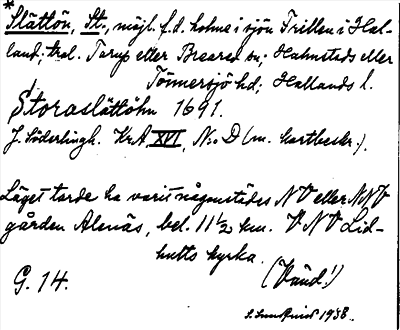 *
Slättön, St., möjl. f.d. holme i sjön Frillen i Hal-
land; trol. Tarup eller Breared sn; Halmstads eller
Tönnersjö hd; Hallands l.
Storaslättöhn 1691.
J. Söderlingh. Kr.A XVI, No D (m. kartbeskr.).
Läget torde ha varit någonstädes NV eller NNV
gården Alenäs, bel. 11 1/2 km. VNV Lid-
hults kyrka.
(Vänd!)
G. 14.
1938.